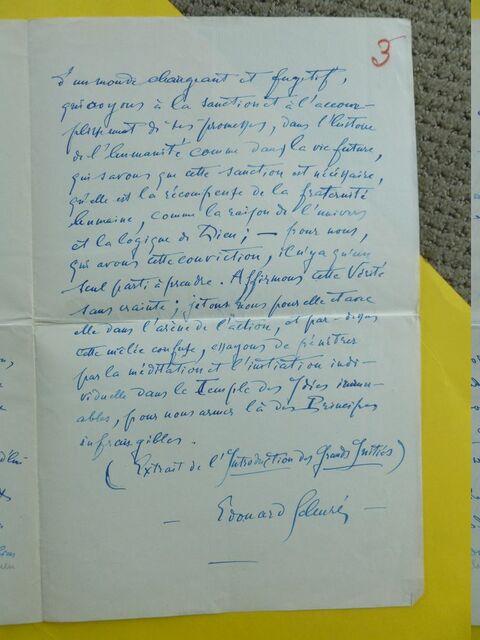 3
d'un monde changeant et fugitif,
qui croyons à la sanction et à l'accom-
plissement de ses promesses, dans l'histoire
de l'humanité comme dans la vie future,
qui savons que cette sanction est nécessaire,
qu'elle est la récompense de la fraternité
humaine, comme la raison de l'univers
et la logique de Dieu ; — pour nous,
qui avons cette conviction, il n'y a qu'un
seul parti à prendre. Affirmons cette Vérité
sans crainte ; jetons nous pour elle et avec
elle dans l'arène de l'action, et par-dessus
cette mêlée confuse, essayons de pénétrer
par la méditation et l'initiation indi-
viduelle dans le Temple des Idées immu-
ables, pour nous armer là des Principes
infrangibles.
(Extrait de l'Introduction des Grands Initiés)
— Edouard Schuré —